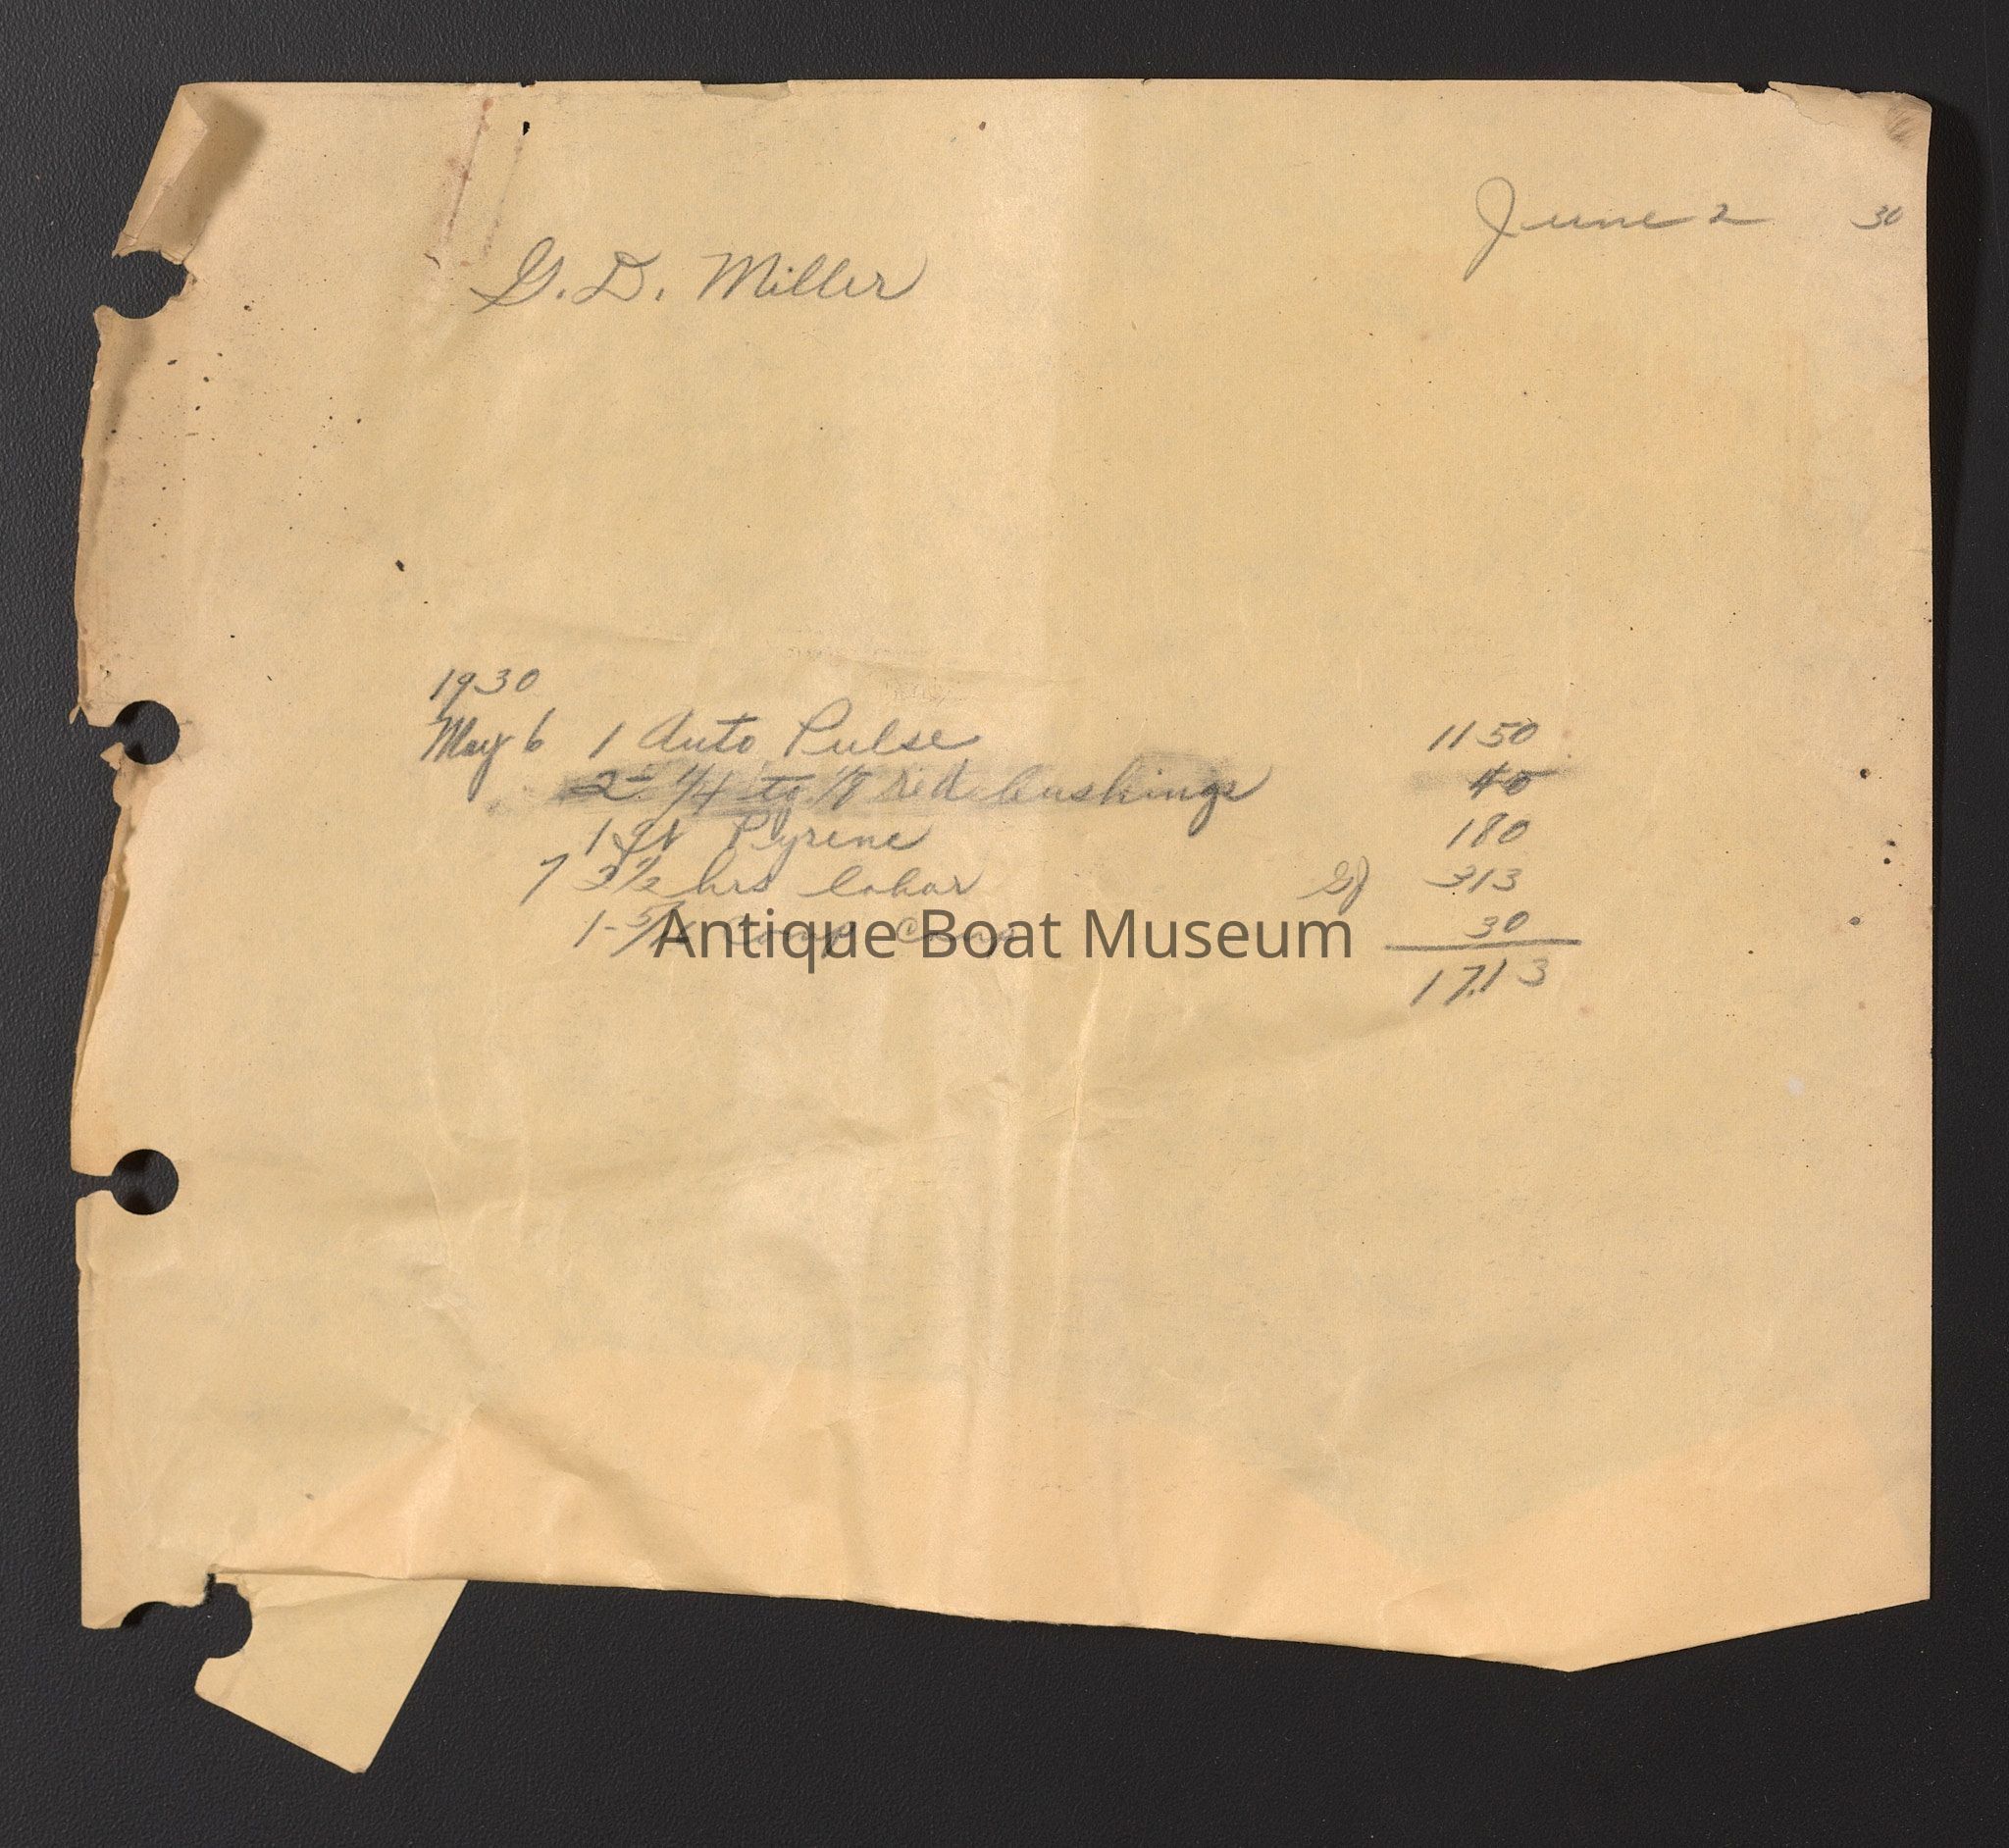 June 2 30
G. D. Miller
1930
May 6 1 Auto Pulse 1150
2- 1/4 to 1/8 red. bushings 40
1 qt Pyrene 180
7 3 1/2 hrs labor 313
1- 5/16 30
Antique Boat Museum
17.13